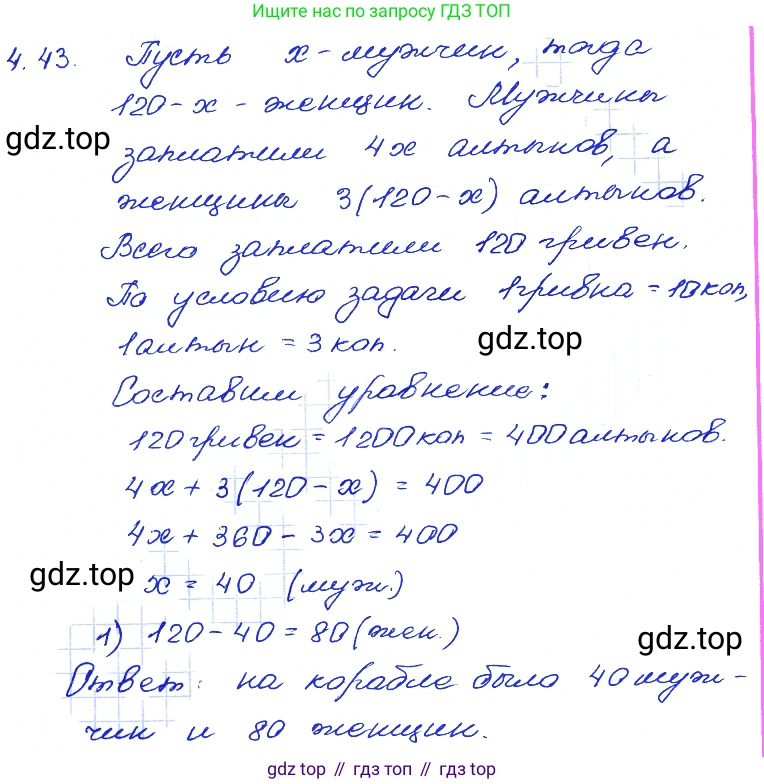 Ищите нас по запросу ГДЗ ТОП
4.43. Пусть x - мужчин, тогда
120 - x - женщин. Мужчины
gdz.top
заплатили 4x алтынов, а
женщины 3(120 - x) алтынов.
Всего заплатили 120 гривен.
По условию задачи 1 гривна = 10 коп,
1 алтын = 3 коп.
gdz.top
Составим уравнение:
120 гривен = 1200 коп = 400 алтынов.
4x + 3(120 - x) = 400
4x + 360 - 3x = 400
gdz.top
x = 40 (муж.)
1) 120 - 40 = 80 (жен.)
gdz.top
Ответ: на корабле было 40 муж-
чин и 80 женщин.
gdz top // гдз топ // gdz top